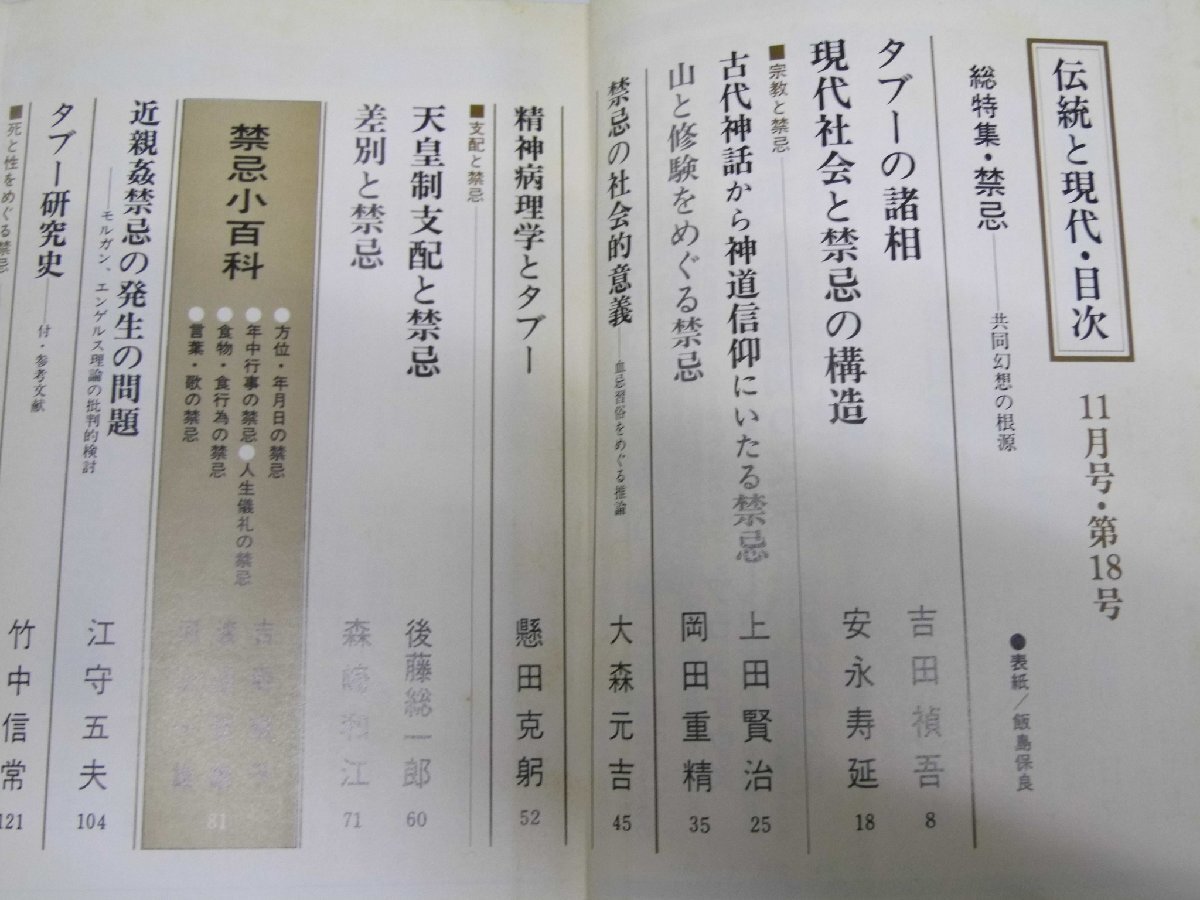 伝統と現代・目次
11月号・第18号
総特集・禁忌──共同幻想の根源
●表紙/飯島保良
タブーの諸相 吉田禎吾 8
現代社会と禁忌の構造 安永寿延 18
■宗教と禁忌
古代神話から神道信仰にいたる禁忌 上田賢治 25
山と修験をめぐる禁忌 岡田重精 35
禁忌の社会的意義──血忌習俗をめぐる推論 大森元吉 45
精神病理学とタブー 懸田克躬 52
■支配と禁忌
天皇制支配と禁忌 後藤総一郎 60
差別と禁忌 森崎和江 71
禁忌小百科 81
●方位・年月日の禁忌
●年中行事の禁忌●人生儀礼の禁忌
●食物・食行為の禁忌
●言葉・歌の禁忌
近親姦禁忌の発生の問題
──モルガン、エンゲルス理論の批判的検討 江守五夫 104
タブー研究史──付・参考文献 竹中信常 121
■死と性をめぐる禁忌